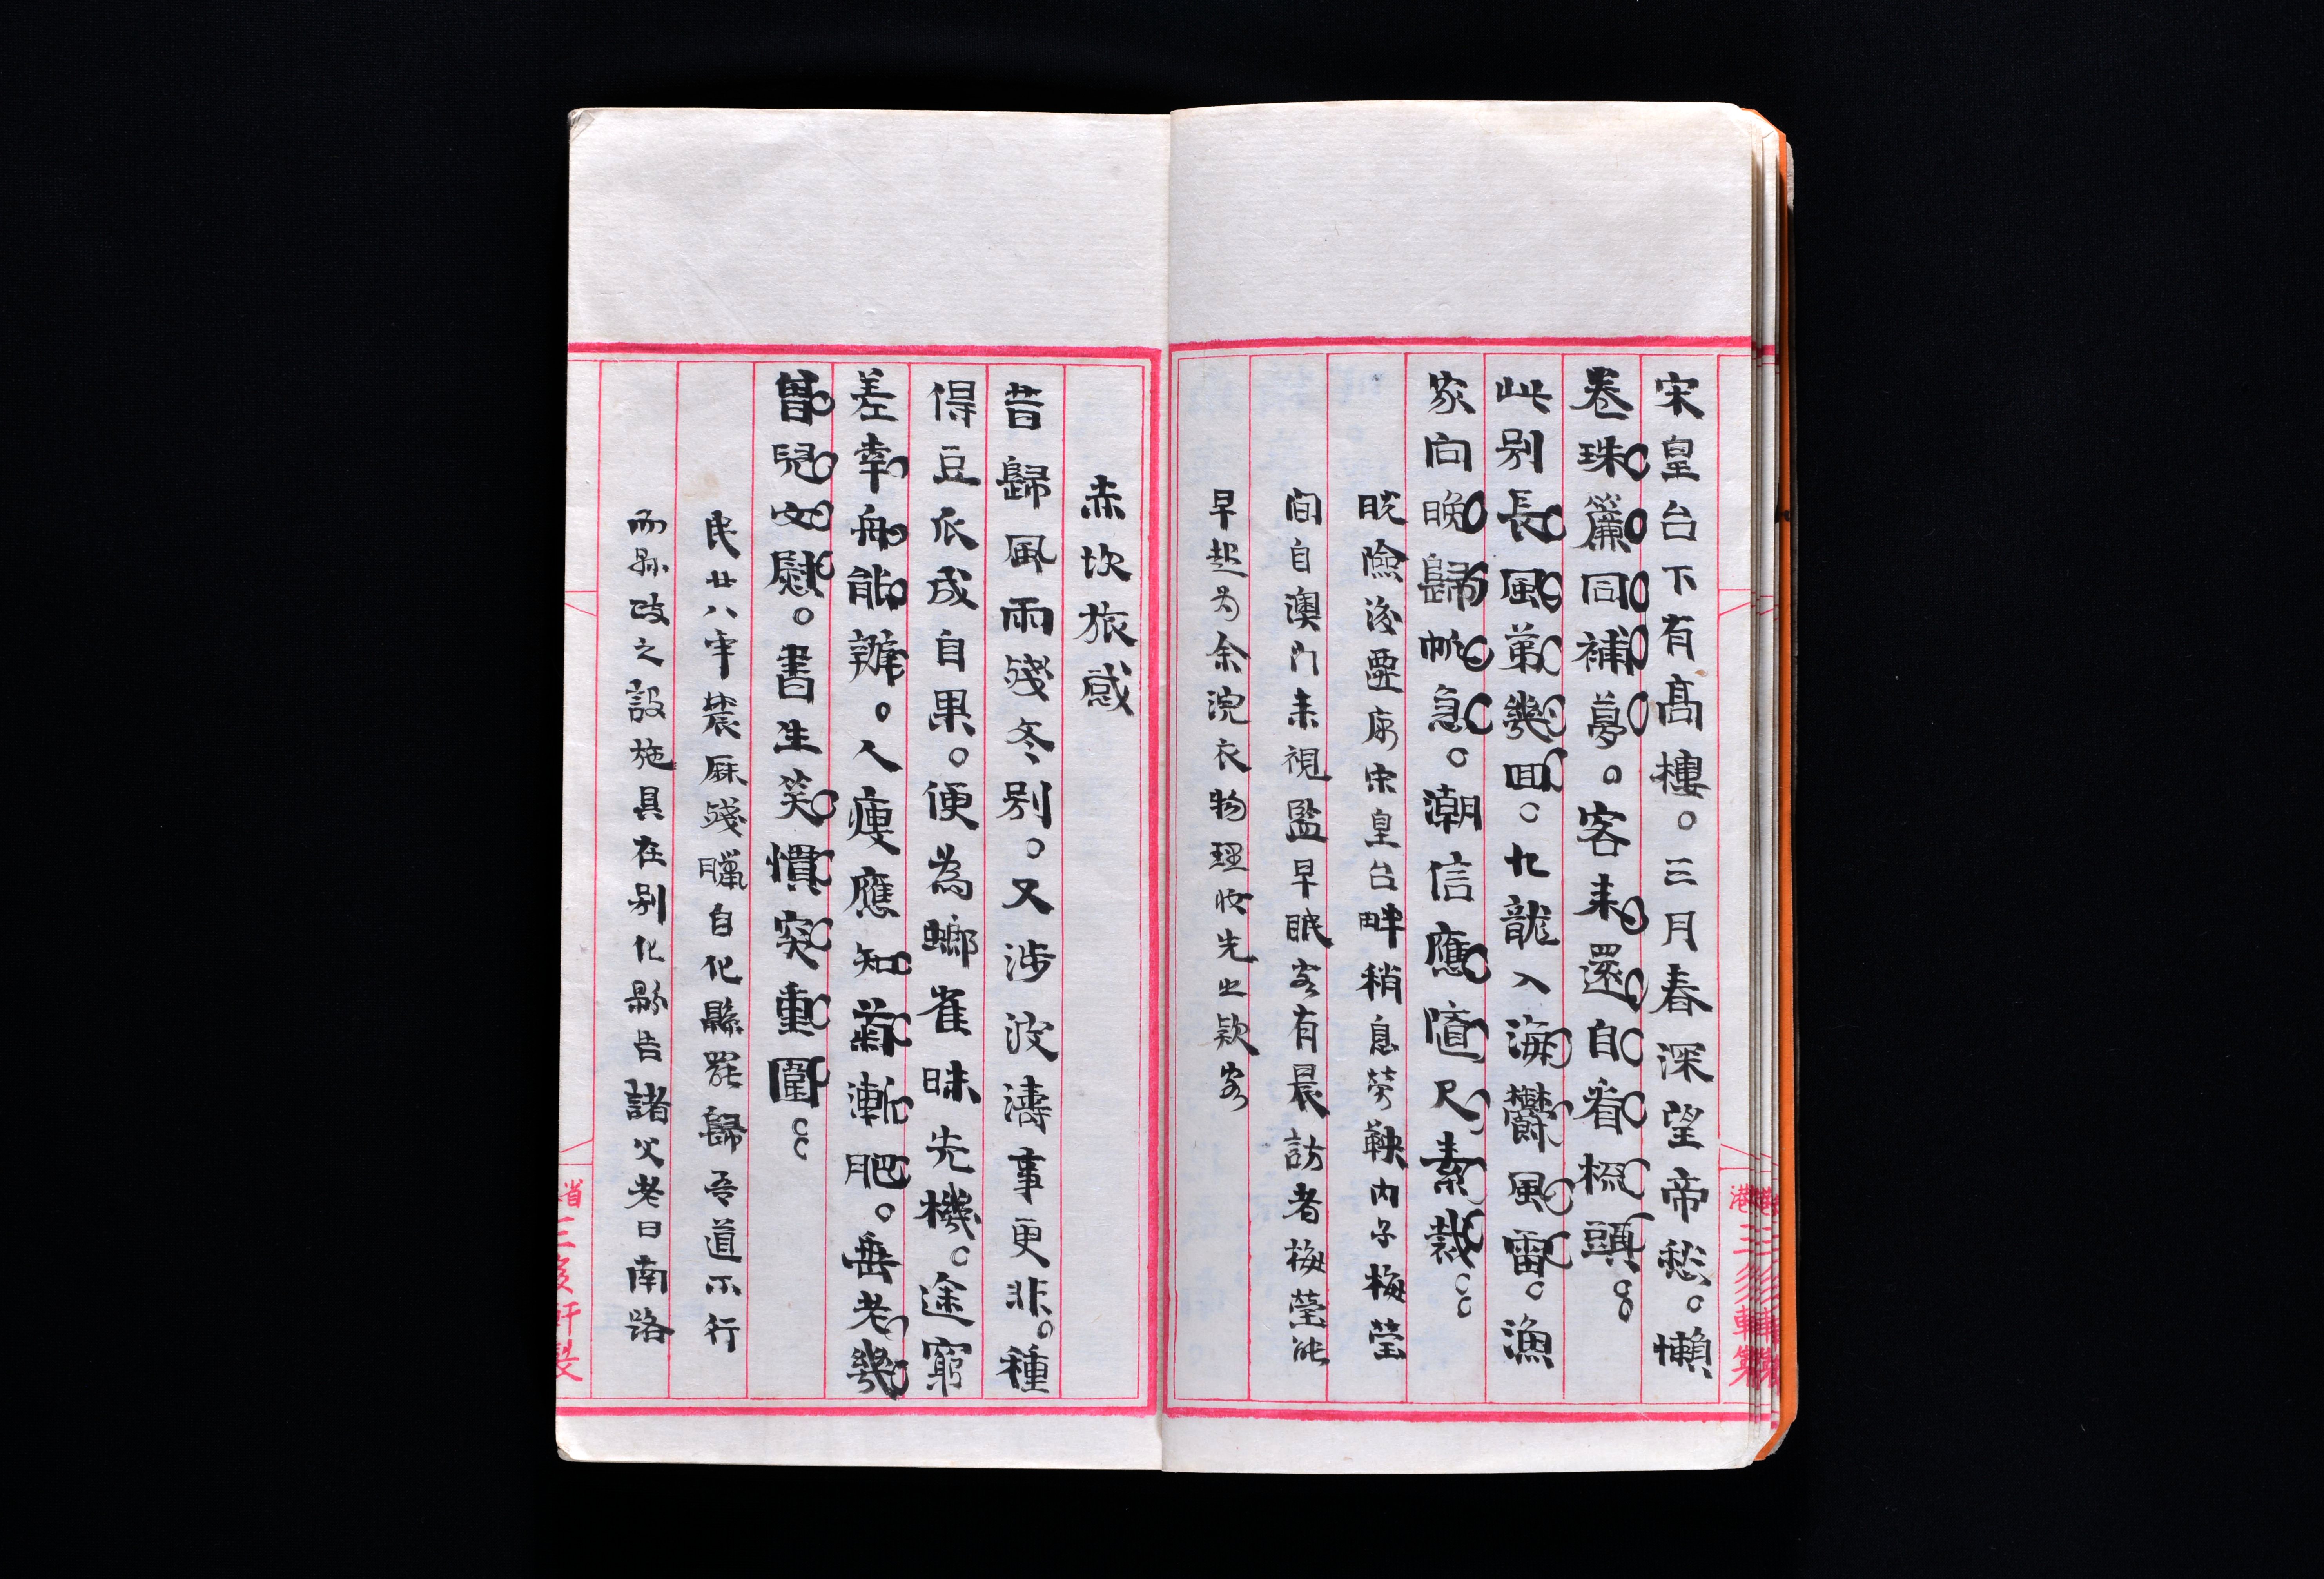 宋皇台下有高樓。三月春深望帝愁。懶
卷珠簾同補夢。客来還自看梳頭。。
此別長風第幾回。九龍入海鬱風雷。漁
家向晚歸帆急。潮信應隨尺素裁。。
脫險後蹔居宋皇台畔稍息勞鞅內子梅瑩
间自澳门来視監早眠客有晨訪者梅瑩能
早起为余浣衣物理妝先出欵客
赤坎旅感
昔歸風雨殘冬別。又涉波濤事更非。種
得豆瓜成自果。便為螂雀昧先機。途窮
差幸舟能辦。人瘦應知薪漸肥。垂老幾
曾兒女慰。書生笑慣突重圍。。
民廿八年農厤殘臘自化縣罷歸吾道不行
而縣政之設施具在別化縣告諸父老曰南路
港三多軒製
省三多軒製